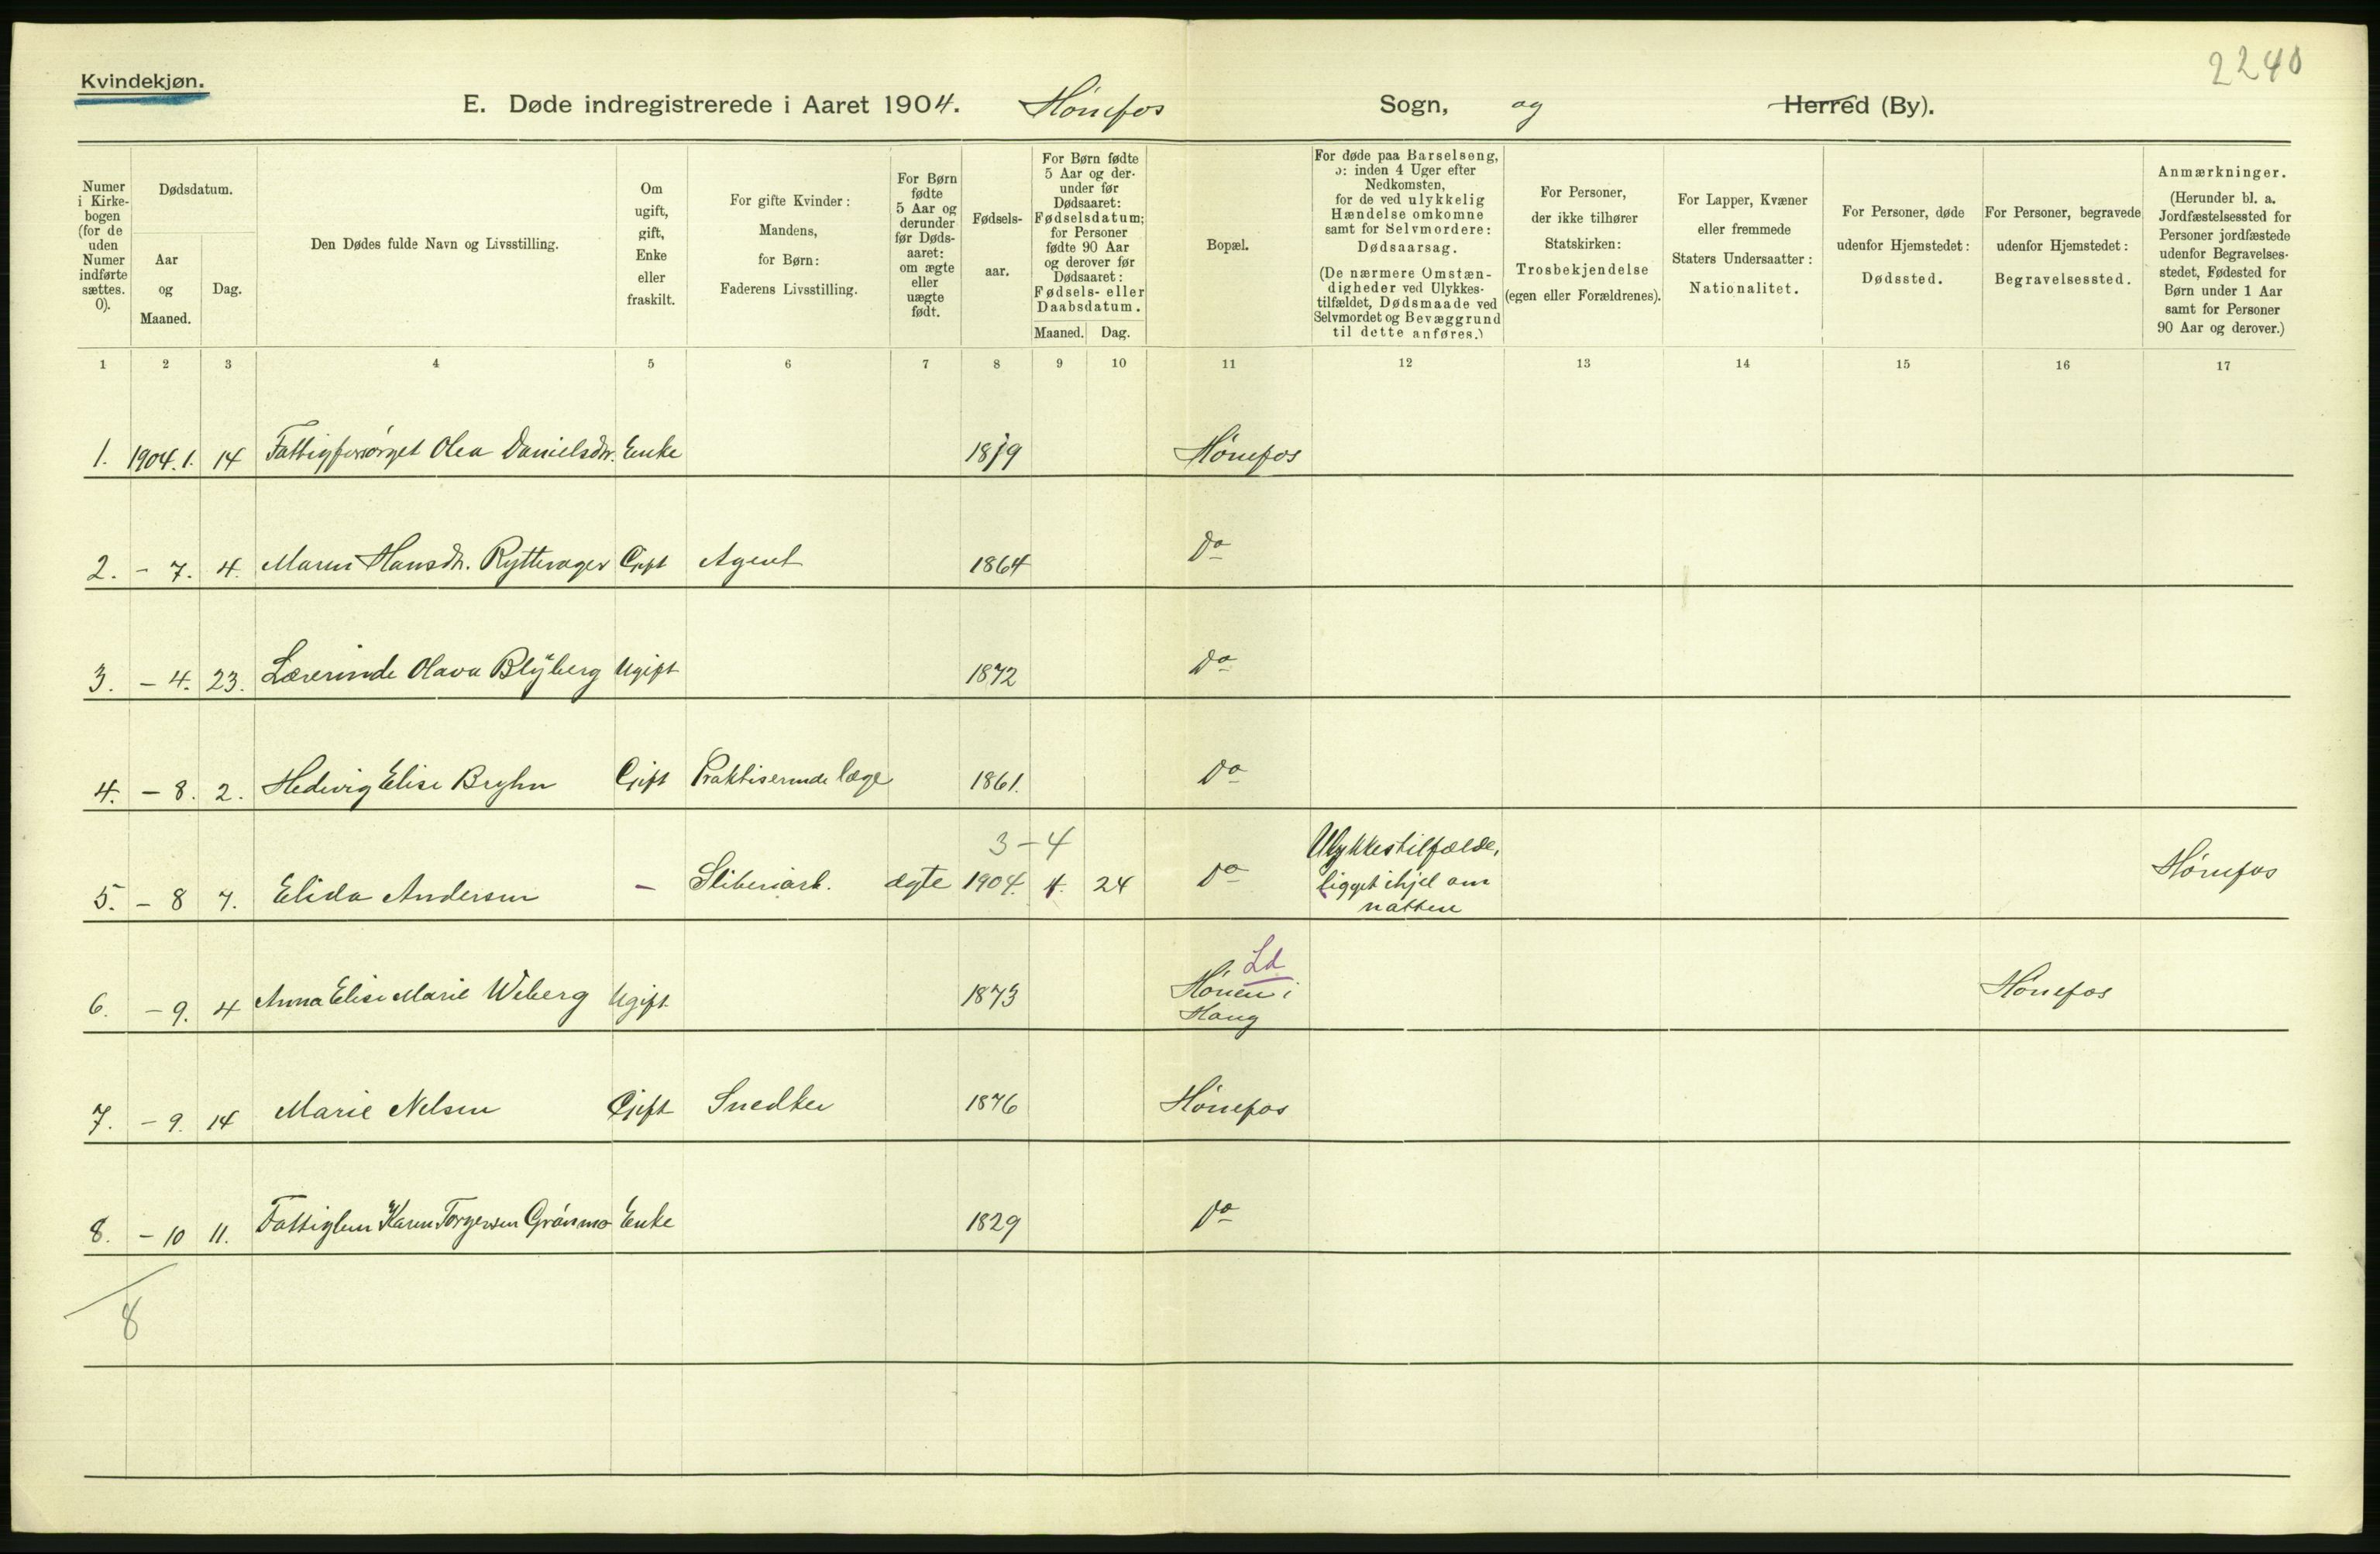 2240
Kvindekjøn.
E. Døde indregistrerede i Aaret 1904. Hønefos Sogn, og Herred (By).
Numer i Kirkebogen (for de uden Numer indførte sættes. 0).
Dødsdatum.
Aar og Maaned.
Dag.
Den Dødes fulde Navn og Livsstilling.
Om ugift, gift, Enke eller fraskilt.
For gifte Kvinder: Mandens, for Børn: Faderens Livsstilling.
For Børn fødte 5 Aar og derunder før Dødsaaret: om ægte eller uægte født.
Fødselsaar.
For Børn fødte 5 Aar og derunder før Dødsaaret: Fødselsdatum; for Personer fødte 90 Aar og derover før Dødsaaret: Fødsels- eller Daabsdatum.
Maaned. Dag.
Bopæl.
For døde paa Barselseng, ɔ: inden 4 Uger efter Nedkomsten, for de ved ulykkelig Hændelse omkomne samt for Selvmordere: Dødsaarsag.
(De nærmere Omstændigheder ved Ulykkestilfældet, Dødsmaade ved Selvmordet og Bevæggrund til dette anføres.)
For Personer, der ikke tilhører Statskirken: Trosbekjendelse (egen eller Forældrenes).
For Lapper, Kvæner eller fremmede Staters Undersaatter: Nationalitet.
For Personer, døde udenfor Hjemstedet: Dødssted.
For Personer, begravede udenfor Hjemstedet: Begravelsessted.
Anmærkninger.
(Herunder bl. a. Jordfæstelsessted for Personer jordfæstede udenfor Begravelsesstedet, Fødested for Børn under 1 Aar samt for Personer 90 Aar og derover.)
1 2 3 4 5 6 7 8 9 10 11 12 13 14 15 16 17
1. 1904.1. 14 Fattigforsørget Olea Danielsdtr. Enke 1819 Hønefos
2. - 7. 4. Maren Hansdtr. Rytterager Gift Agent 1864 Do
3. - 4. 23. Lærerinde Olava Blyberg Ugift 1872 Do
4. - 8. 2. Hedevig Elise Bryhn Gift Praktiserende læge 1861. Do
3-4
5. - 8 7. Elida Andersen - Sliberiarb. ægte 1904. 4. 24 Do Ulykkestilfælde, ligget ihjel om natten Hønefos
6. - 9. 4 Anna Elise Marie Wiberg Ugift 1873 Ld Hønen i Haug Hønefos
7. - 9. 14 Marie Nelsen Gift Snedker 1876 Hønefos
8. - 10 11. Fattiglem Karen Torgersen Grønmo Enke 1829 Do
8